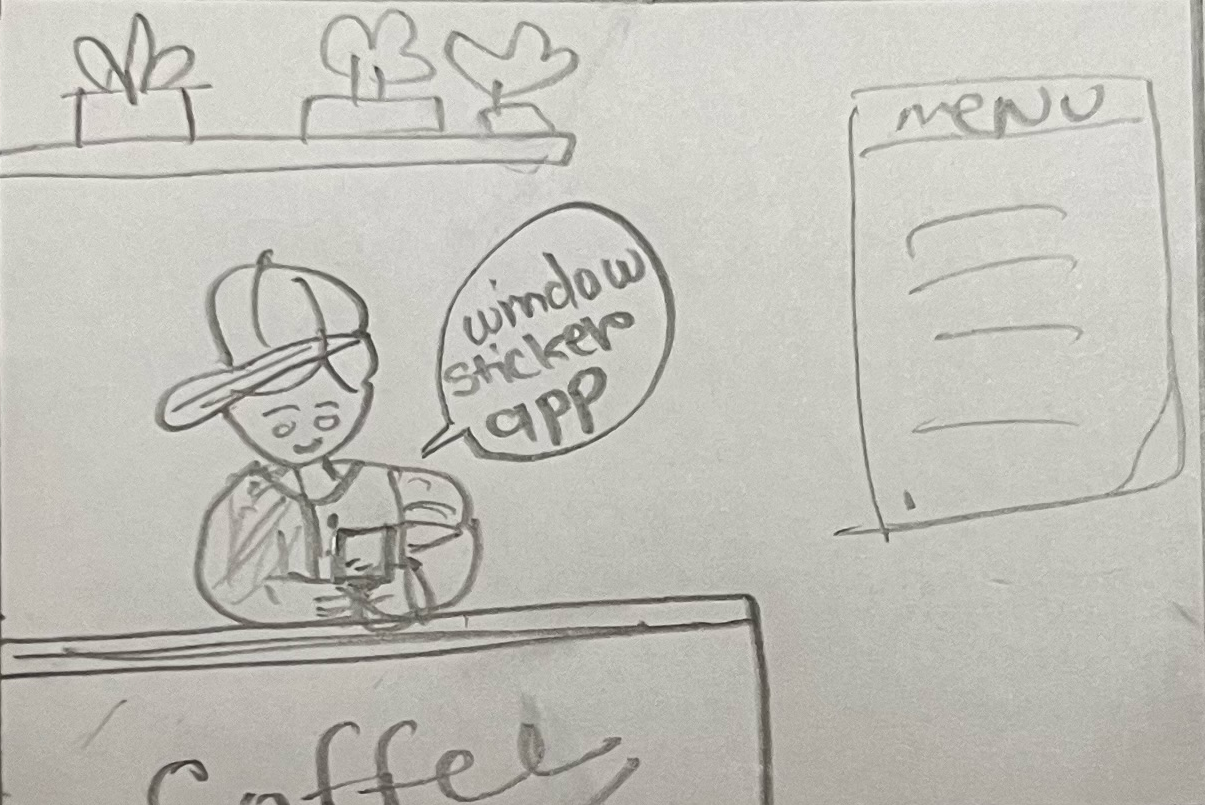 menu
window
sticker
app
Coffee